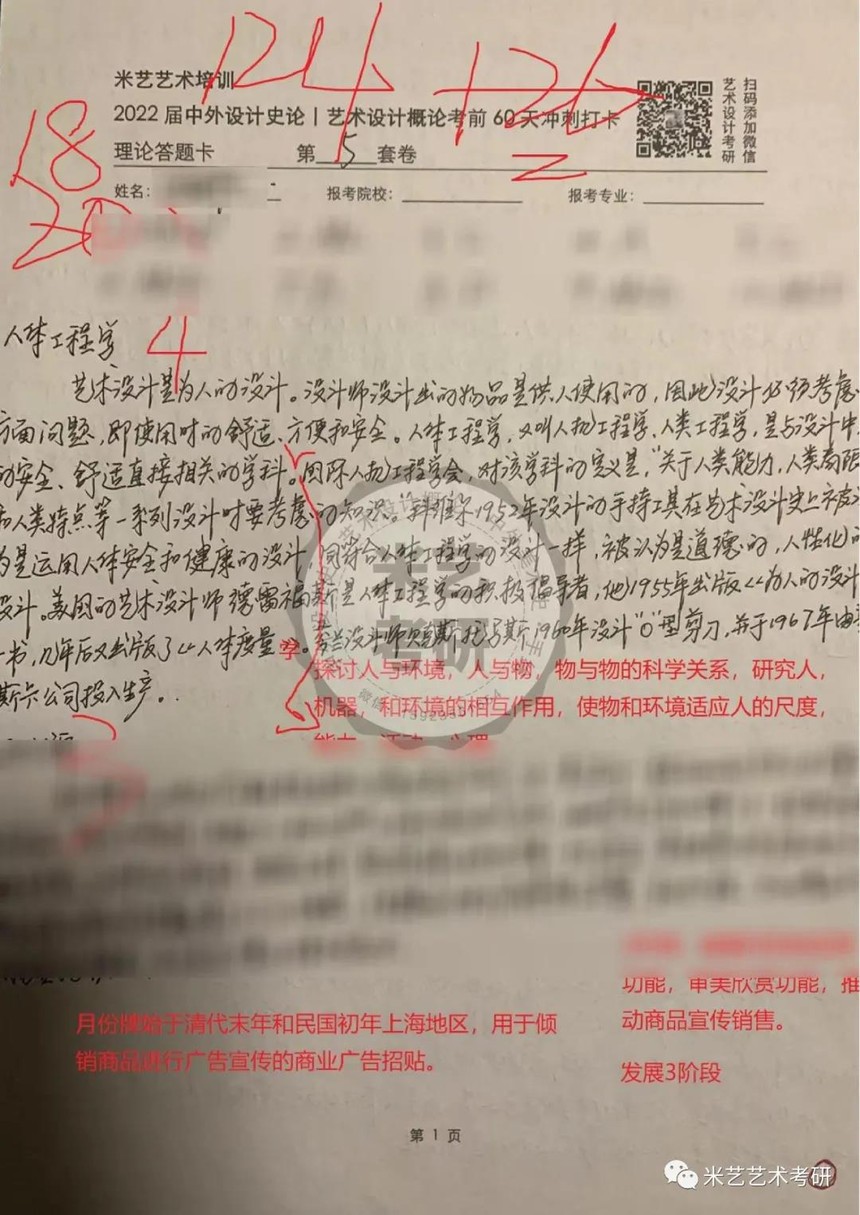 124 +26
米艺艺术培训
2022届中外设计史论丨艺术设计概论考前60天冲刺打卡
理论答题卡 第5套卷
扫码添加微信
艺术设计考研
18
姓名： 报考院校： 报考专业：
人体工程学 4
艺术设计是为人的设计。设计师设计出的物品是供人使用的，因此设计必须考虑
方面问题，即使用时的舒适、方便和安全。人体工程学，又叫人物工程学、人类工程学，是与设计中
的安全、舒适直接相关的学科。国际人物工程学会，对该学科的定义是，“关于人类能力，人类局限
和人类特点等一系列设计时要考虑的知识。” 1952年设计的手持工具在艺术设计史上被
为是运用人体安全和健康的设计，同符合人体工程学的设计一样，被认为是道德的，人性化的
设计。美国的艺术设计师德雷福斯是人体工程学的积极倡导者，他1955年出版《为人的设计
一书，几年后又出版了《人体度量学。芬兰设计师贝克斯托姆斯1960年设计“O”型剪刀，并于1967年由
斯卡公司投入生产。
探讨人与环境，人与物，物与物的科学关系，研究人，
机器，和环境的相互作用，使物和环境适应人的尺度，
功能，审美欣赏功能，推
动商品宣传销售。
月份牌始于清代末年和民国初年上海地区，用于倾
销商品进行广告宣传的商业广告招贴。
发展3阶段
第 1 页
米艺艺术考研
米艺
考研